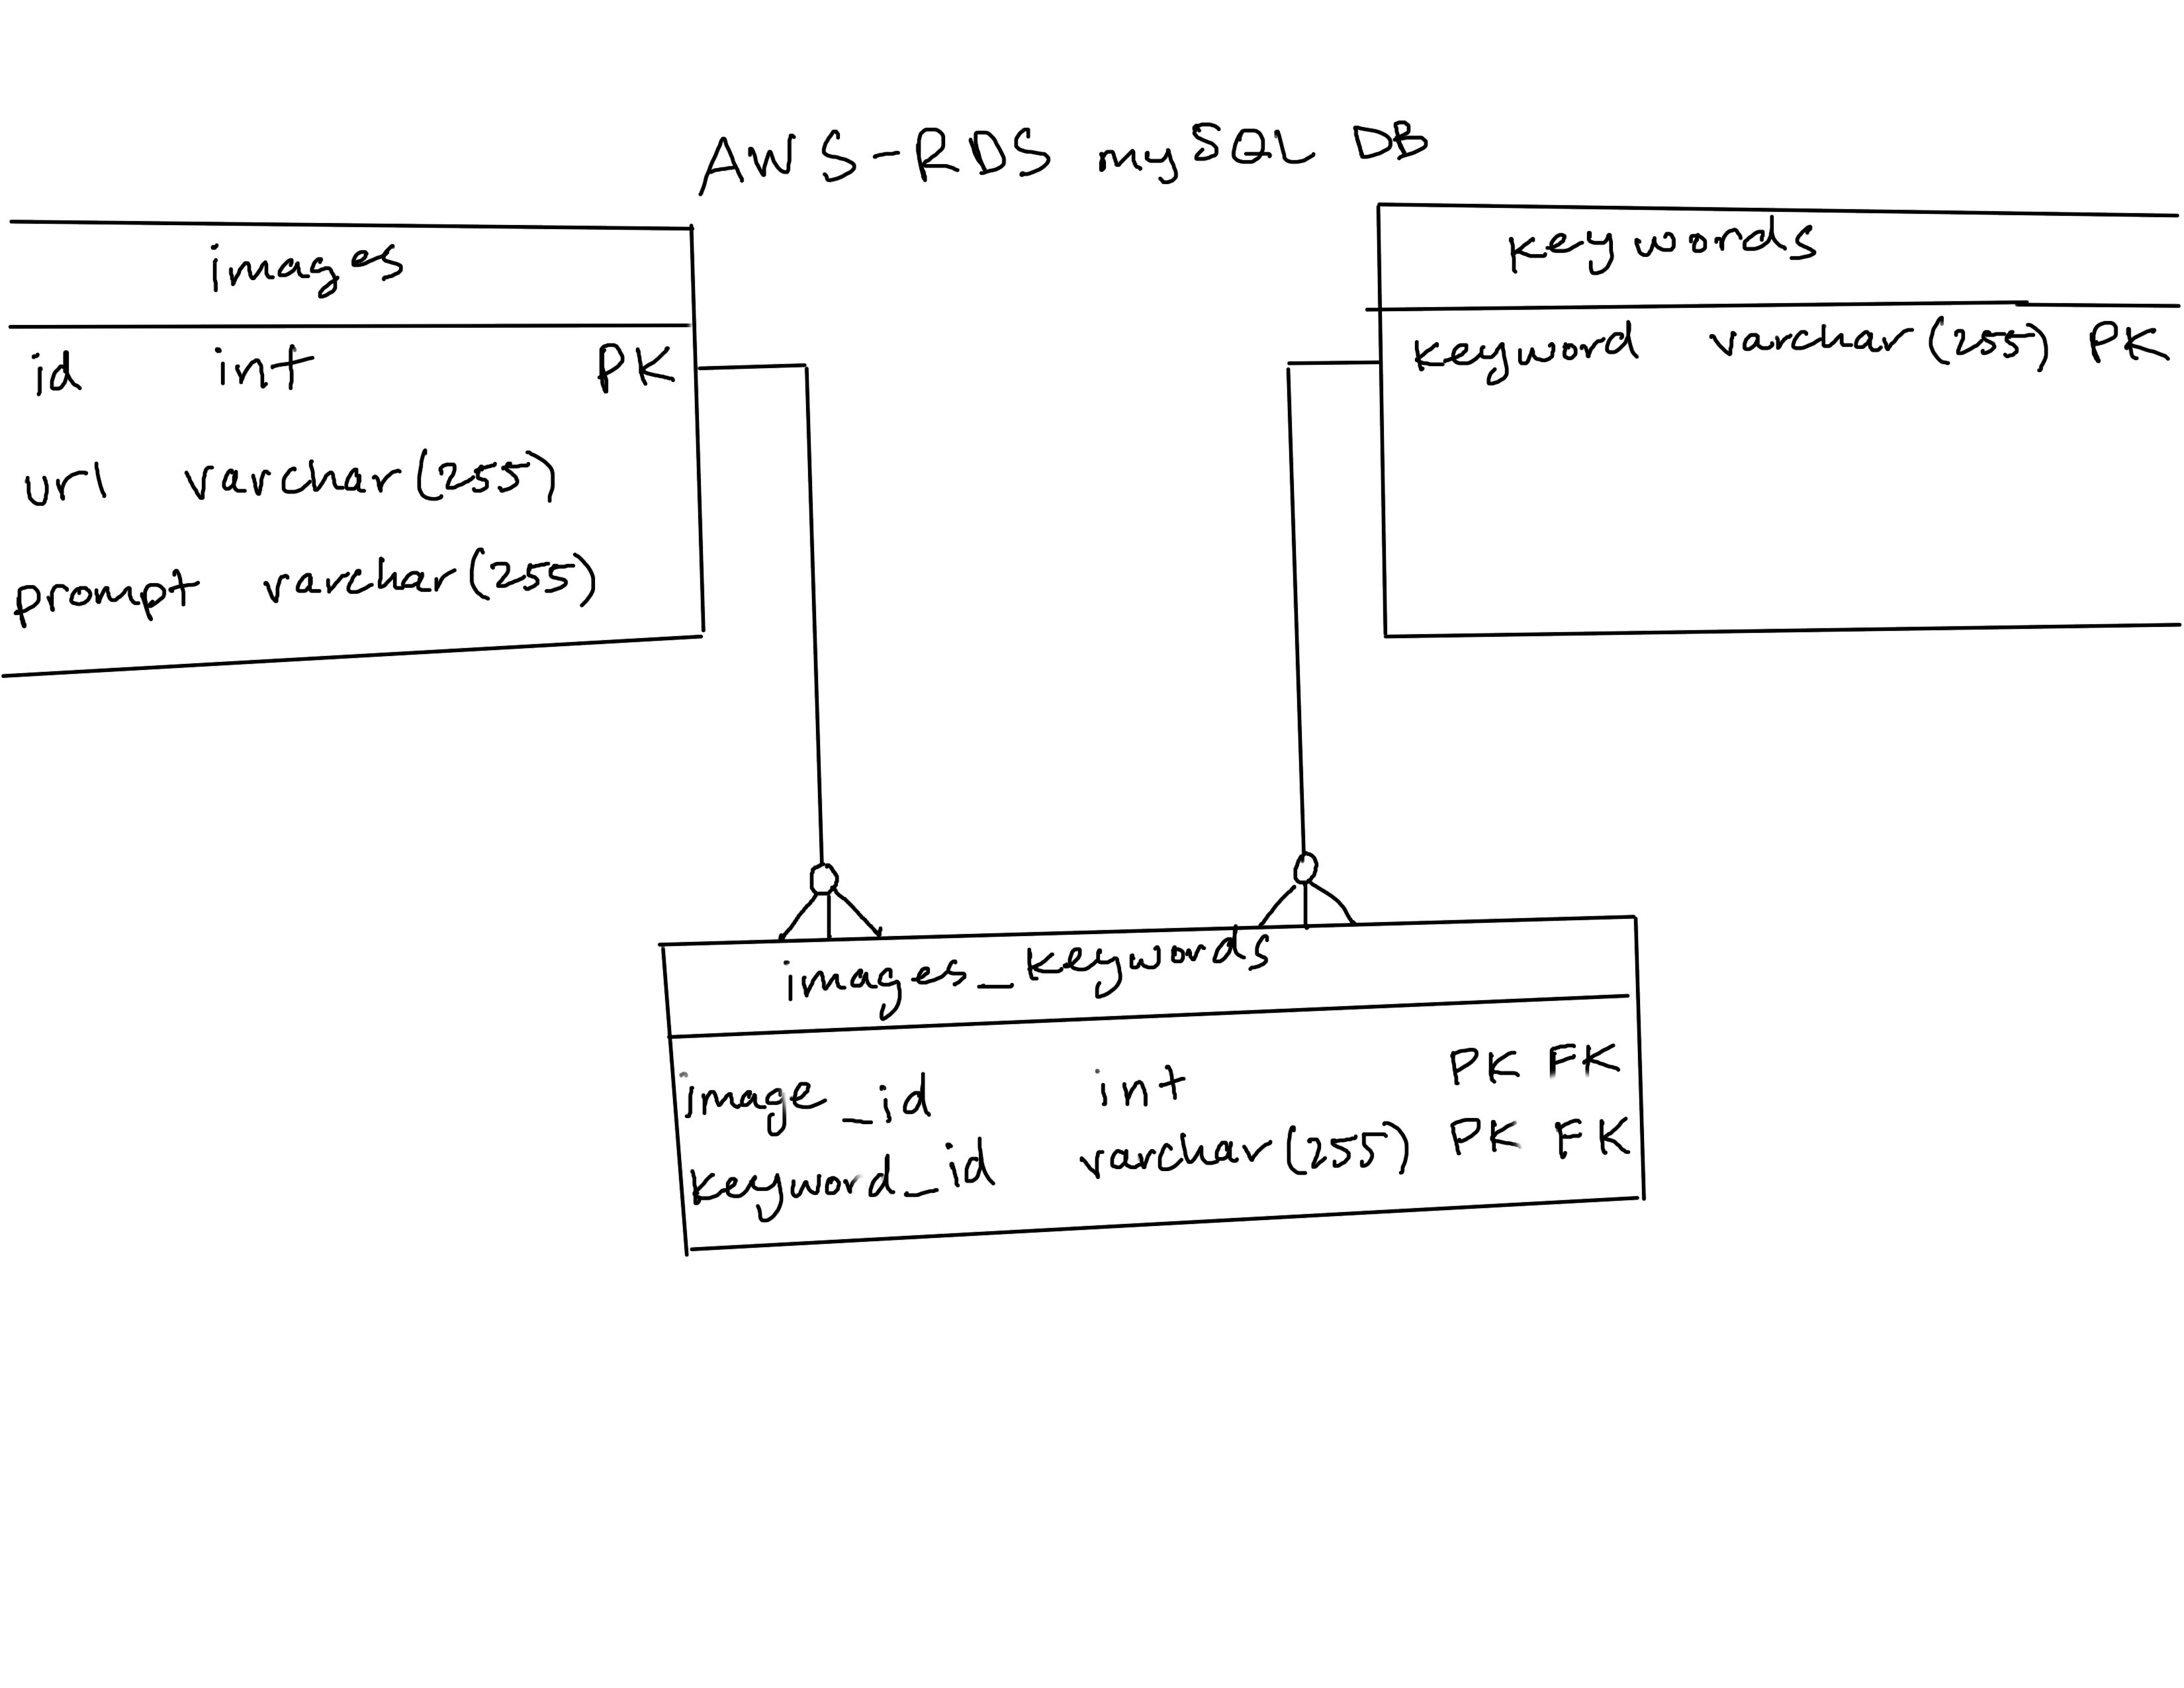 AWS-RDS mySQL DB
images
id int PK
url varchar(255)
prompt varchar(255)
keywords
keyword varchar(255) PK
images_keywords
image_id int PK FK
keyword_id varchar(255) PK FK